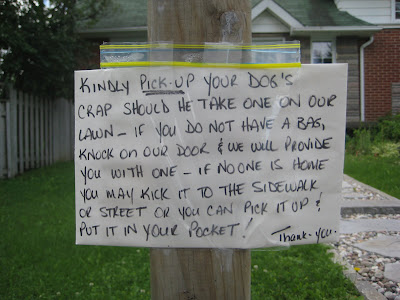 KINDLY PICK-UP YOUR DOG'S
CRAP SHOULD HE TAKE ONE ON OUR
LAWN - IF YOU DO NOT HAVE A BAG,
KNOCK ON OUR DOOR & WE WILL PROVIDE
YOU WITH ONE - IF NO ONE IS HOME
YOU MAY KICK IT TO THE SIDEWALK
OR STREET OR YOU CAN PICK IT UP &
PUT IT IN YOUR POCKET!
Thank-you.